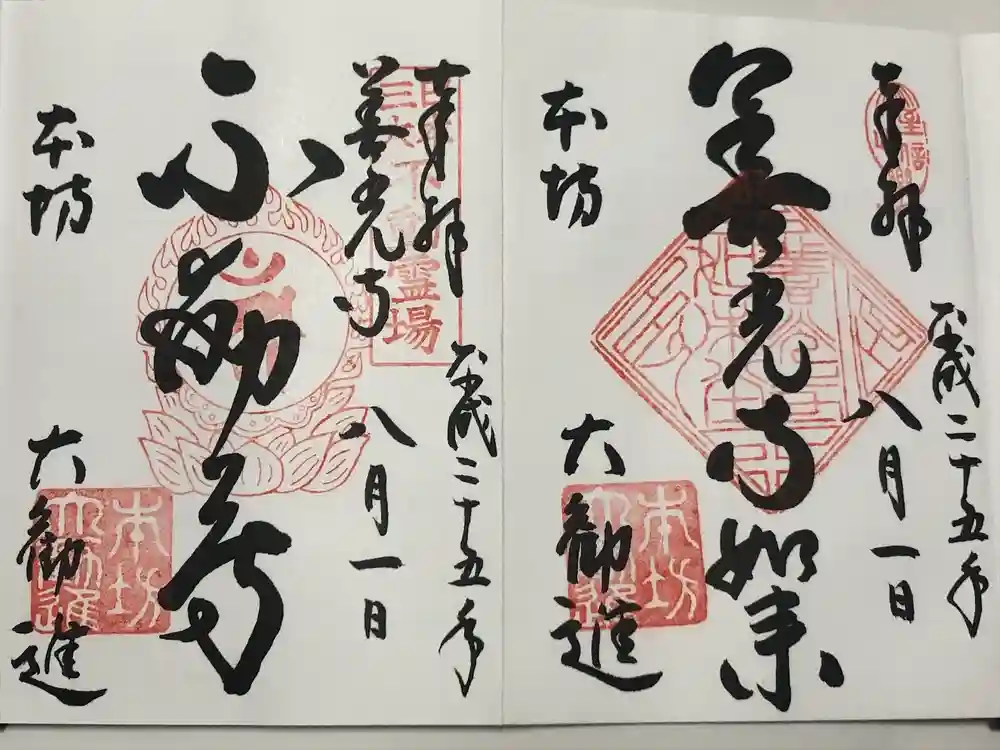 奉拝
平成二十五年
八月一日
善光寺如来
本坊
大勧進
本坊
大勧進
奉拝
善光寺
平成二十五年
八月一日
不動尊
不動霊場
本坊
大勧進
本坊
大勧進